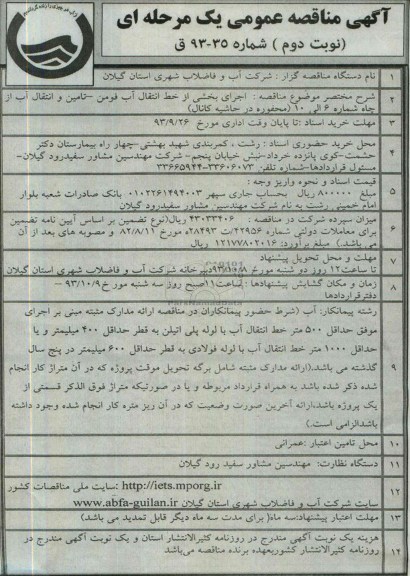 آگهی مناقصه عمومی یک مرحله ای
(نوبت دوم ) شماره ۳۵-۹۳ ق
۱ نام دستگاه مناقصه گزار : شرکت آب و فاضلاب شهری استان گیلان
۲ شرح مختصر موضوع مناقصه : اجرای بخشی از خط انتقال آب فومن –تامین و انتقال آب از
چاه شماره ۶ الی ۱۰ (محفوره در حاشیه کانال)
۳ مهلت خرید اسناد :تا پایان وقت اداری مورخ ۹۳/۹/۲۶
۴ محل خرید حضوری اسناد : رشت ، کمربندی شهید بهشتی-چهار راه بیمارستان دکتر
حشمت-کوی پانزده خرداد-نبش خیابان پنجم- شرکت مهندسین مشاور سفیدرود گیلان-
مسئول قراردادها-شماره تلفن ۳۳۶۰۶۰۷۳-۳۳۶۶۵۹۴۴
۵ قیمت اسناد و نحوه واریز وجه :
مبلغ ۸۰۰۰۰۰ ریال بحساب جاری سپهر ۰۱۰۲۲۶۱۴۹۴۰۰۳ بانک صادرات شعبه بلوار
امام خمینی رشت به نام شرکت مهندسین مشاور سفیدرود گیلان
۶ میزان سپرده شرکت در مناقصه : ۴۳۰۳۳۴۰۶ ریال(نوع تضمین بر اساس آیین نامه تضمین
برای معاملات دولتی شماره ۴۲۹۵۶/ت ۲۸۴۹۳ه مورخ ۸۲/۸/۱۱ و مصوبه های بعد از آن
می باشد.) مبلغ برآورد: ۱۲۱۷۷۸۰۲۰۱۶ ریال
۷ مهلت و محل تحویل پیشنهاد
تا ساعت۱۲ روز دو شنبه مورخ ۹۳/۱۰/۸ دبیرخانه شرکت آب و فاضلاب شهری استان گیلان
۸ زمان و مکان گشایش پیشنهادها : ساعت۱۱صبح روز سه شنبه مورخ ۹۳/۱۰/۹-
دفتر قراردادها
۹ رشته پیمانکار: آب (شرط حضور پیمانکاران در مناقصه ارائه مدارک مثبته مبنی بر اجرای
موفق حداقل ۵۰۰ متر خط انتقال آب با لوله پلی اتیلن به قطر حداقل ۴۰۰ میلیمتر و یا
حداقل ۱۰۰۰ متر خط انتقال آب با لوله فولادی به قطر حداقل ۶۰۰ میلیمتر در پنج سال
گذشته می باشد.(ارائه مدارک مثبته شامل برگه تحویل موقت پروژه که در آن متراژ کار انجام
شده ذکر شده باشد به همراه قرارداد مربوطه و یا در صورتیکه متراژ فوق الذکر قسمتی از
یک پروژه باشد،ارائه آخرین صورت وضعیت که در آن ریز متره کار انجام شده وجود داشته
باشدالزامی است.)
۱۰ محل تامین اعتبار :عمرانی
۱۱ دستگاه نظارت: مهندسین مشاور سفید رود گیلان
۱۲ سایت ملی مناقصات کشور: http://iets.mporg.ir
سایت شرکت آب و فاضلاب شهری استان گیلان www.abfa-guilan.ir
۱۳ مهلت اعتبار پیشنهاد:سه ماه( برای مدت سه ماه دیگر قابل تمدید می باشد)
۱۴ هزینه یک نوبت آگهی مندرج در روزنامه کثیرالانتشار استان و یک نوبت آگهی مندرج در
روزنامه کثیرالانتشار کشوربعهده برنده مناقصه می‌باشد